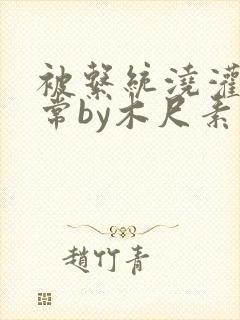 被系统浇灌
常by木尺素
赵竹青